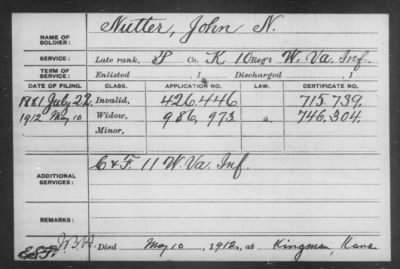 NAME OF SOLDIER: Nutter, John N.
SERVICE: Late rank, P Co. K 10 Reg't W. Va. Inf.
TERM OF SERVICE: Enlisted , 1 Discharged , 1
DATE OF FILING. CLASS. APPLICATION NO. LAW. CERTIFICATE NO.
1881 July 22 Invalid, 426.446 715.739.
1912 May 10 Widow, 986.973 a. 746.304.
Minor,
ADDITIONAL SERVICES: C & F. 11 W. Va. Inf.
REMARKS:
Died May 10, 1912, at Kingman, Kans